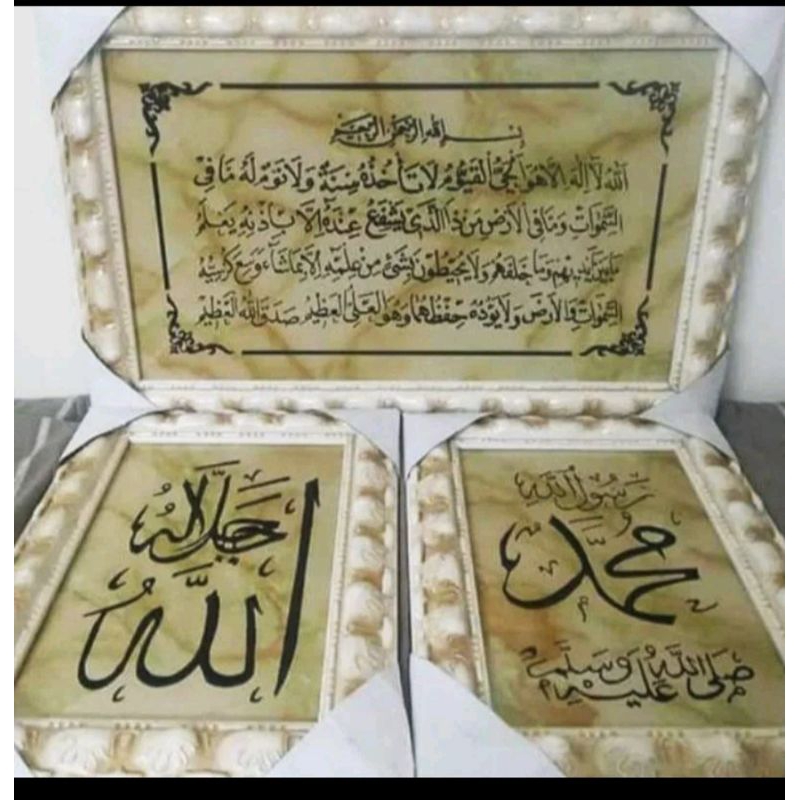 بسم الله الرحمن الرحيم
الله لا إله إلا هو الحي القيوم لا تأخذه سنة ولا نوم له ما في
السموات وما في الأرض من ذا الذي يشفع عنده إلا بإذنه يعلم
ما بين أيديهم وما خلفهم ولا يحيطون بشئ من علمه إلا بما شاء وسع كرسيه
السموات والأرض ولا يؤده حفظهما وهو العلي العظيم صدق الله العظيم
جل جلاله
الله
رسول الله
محمد
صلى الله
عليه وسلم